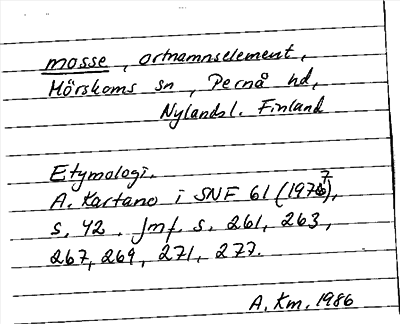 mosse, ortnamnselement,
Mörskoms sn, Pernå hd,
Nylandsl. Finland
Etymologi.
A. Kartano i SNF 61 (1977),
s. 42. Jmf. s. 261, 263,
267, 269, 271, 277.
A. Km. 1986